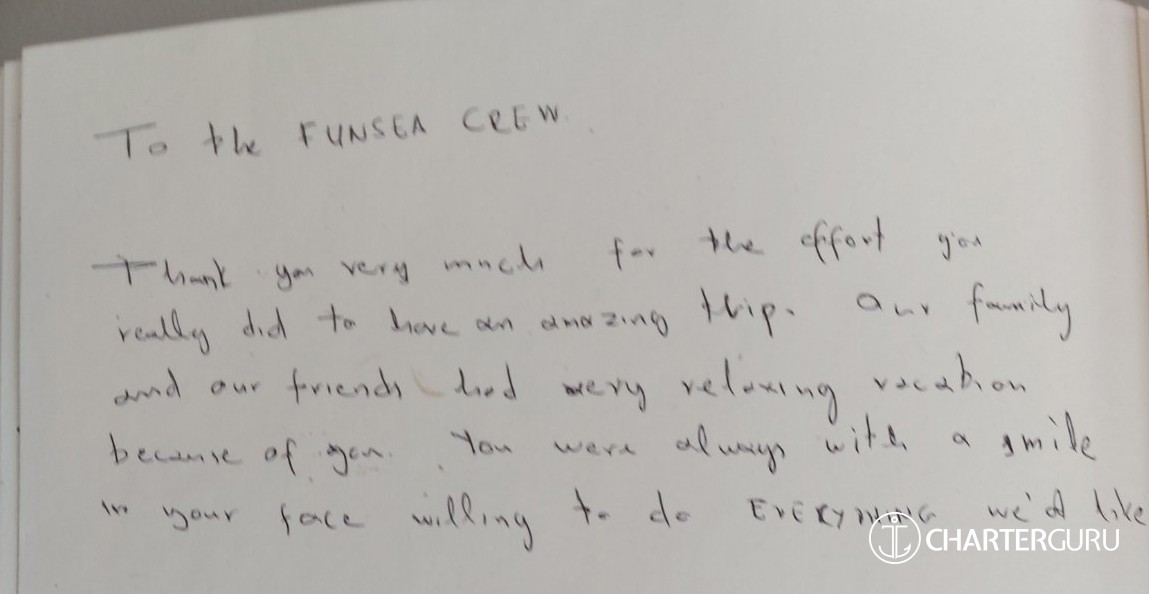 To the FUNSEA CREW.
Thank you very much for the effort you
really did to have an amazing thip. Our family
and our friends had very relaxing vacation
because of you. You were always with a smile
in your face willing to do EVERYTHING we'd like
CHARTERGURU